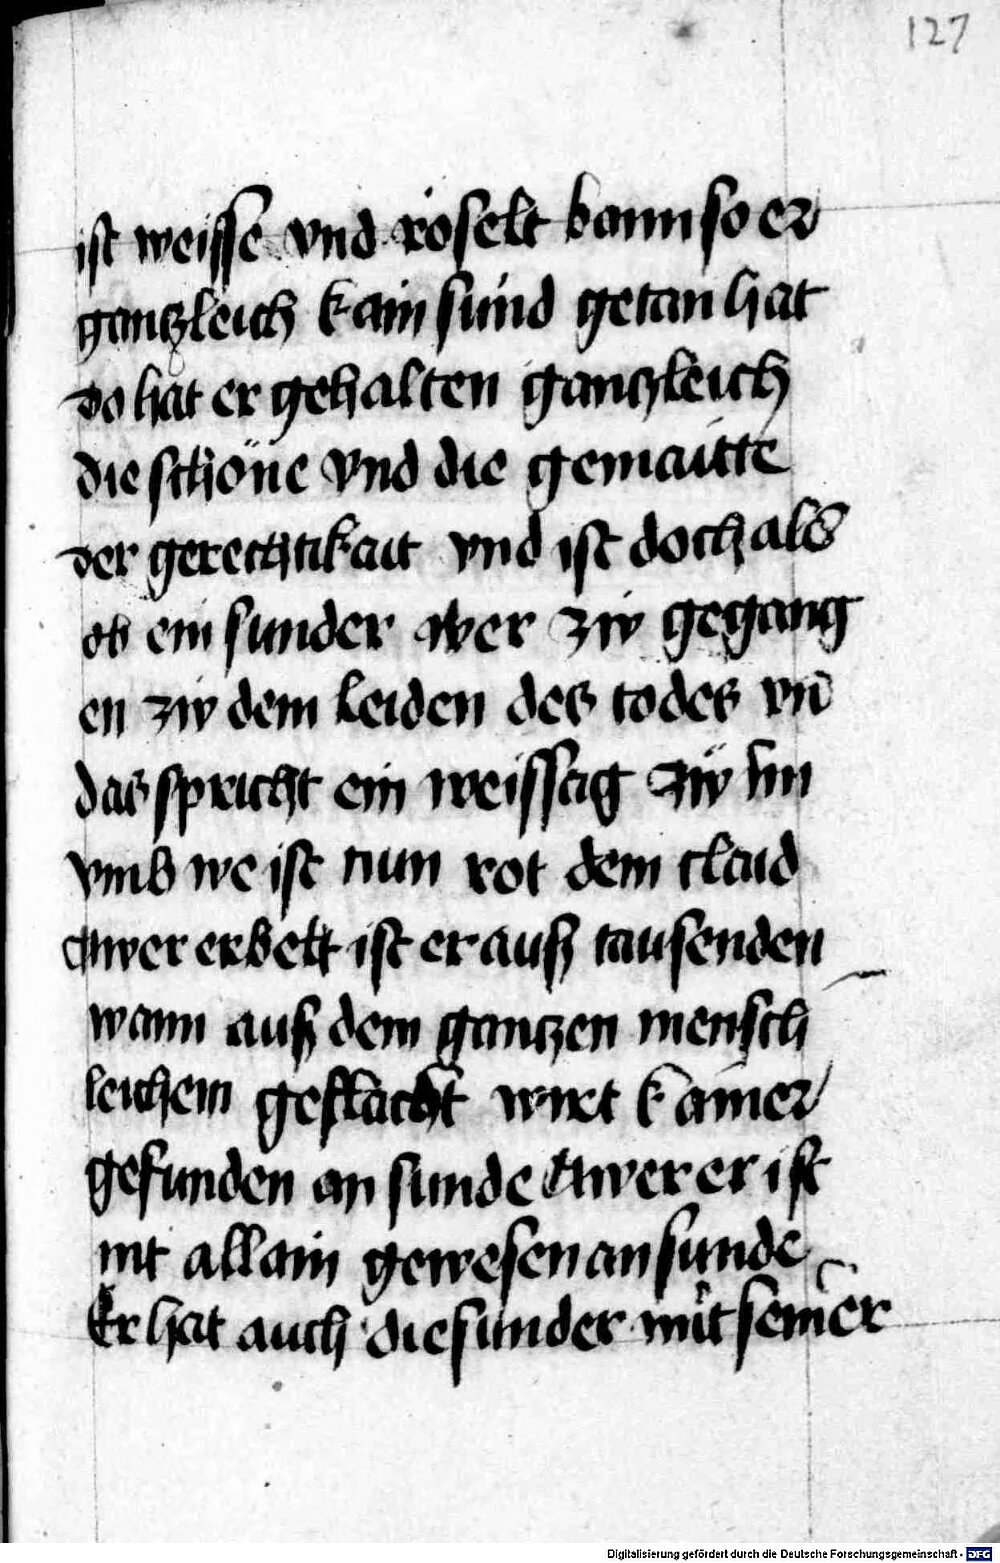 127
ist weisse vnd röselt bann so er
gantzleich kain sünd getan hat
do hat er gehalten gantzleich
die schöne vnd die gemaitte
der gerechtikait vnd ist doch als
ob ein sunder aber ziv gegang
en ziv dem leiden des todes vn̄
das spricht ein weissag ziv im
vmb we ist nun rot dem claid
Awer erbelt ist er auß tausenden
wann auß dem gantzen mensch
leichem geslacht wirt kainer
gefunden an sunde Awer er ist
nit allain gewesen an sunde
Er hat auch die sunder mit seiner
Digitalisierung gefördert durch die Deutsche Forschungsgemeinschaft - DFG